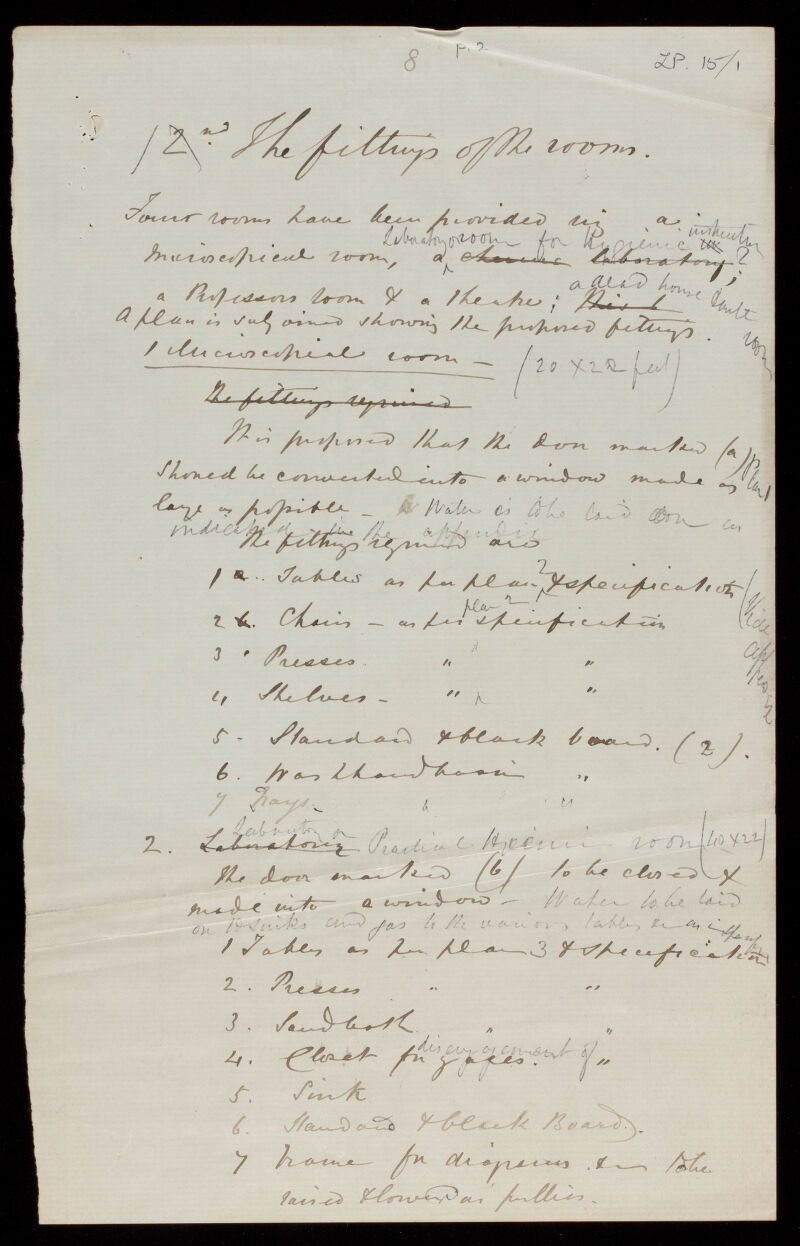 8 p. 2 LP. 15/1
(2nd The fittings of the rooms.
Four rooms have been provided viz a
Laboratory or room for Hygienic instruction
microscopical room, a chemic laboratory;
a Professors room & a theatre; a dead house &
A plan is subjoined showing the proposed fittings. room
1 Microscopical room – (20 x 22 feet)
The fittings required
It is proposed that the door marked (a) plan 1
should be converted into a window made as
large as possible – Water is to be laid on as
indicated in the appendix
The fittings required are
1 a. Tables as per plan 2 & specification (Vide
2 b. Chairs – as per plan 2 specification
3 Presses " "
4 Shelves – " "
5 – Standard & black board. (2).
6. Wash hand basin "
7 Trays – " "
Laboratory or
2. Laboratory Practical Hygienic room (40 x 22)
The door marked (b) to be closed &
made into a window – Water to be laid
on to sinks and gas to the various tables & as in
1 Tables as per plan 3 & specification
2. Presses " "
3. Sandbath " "
4. Closet for disengagement of gases. "
5. Sink
6. Standard & black Board.
7 Frame for diagrams to be
raised & lowered as pullies.